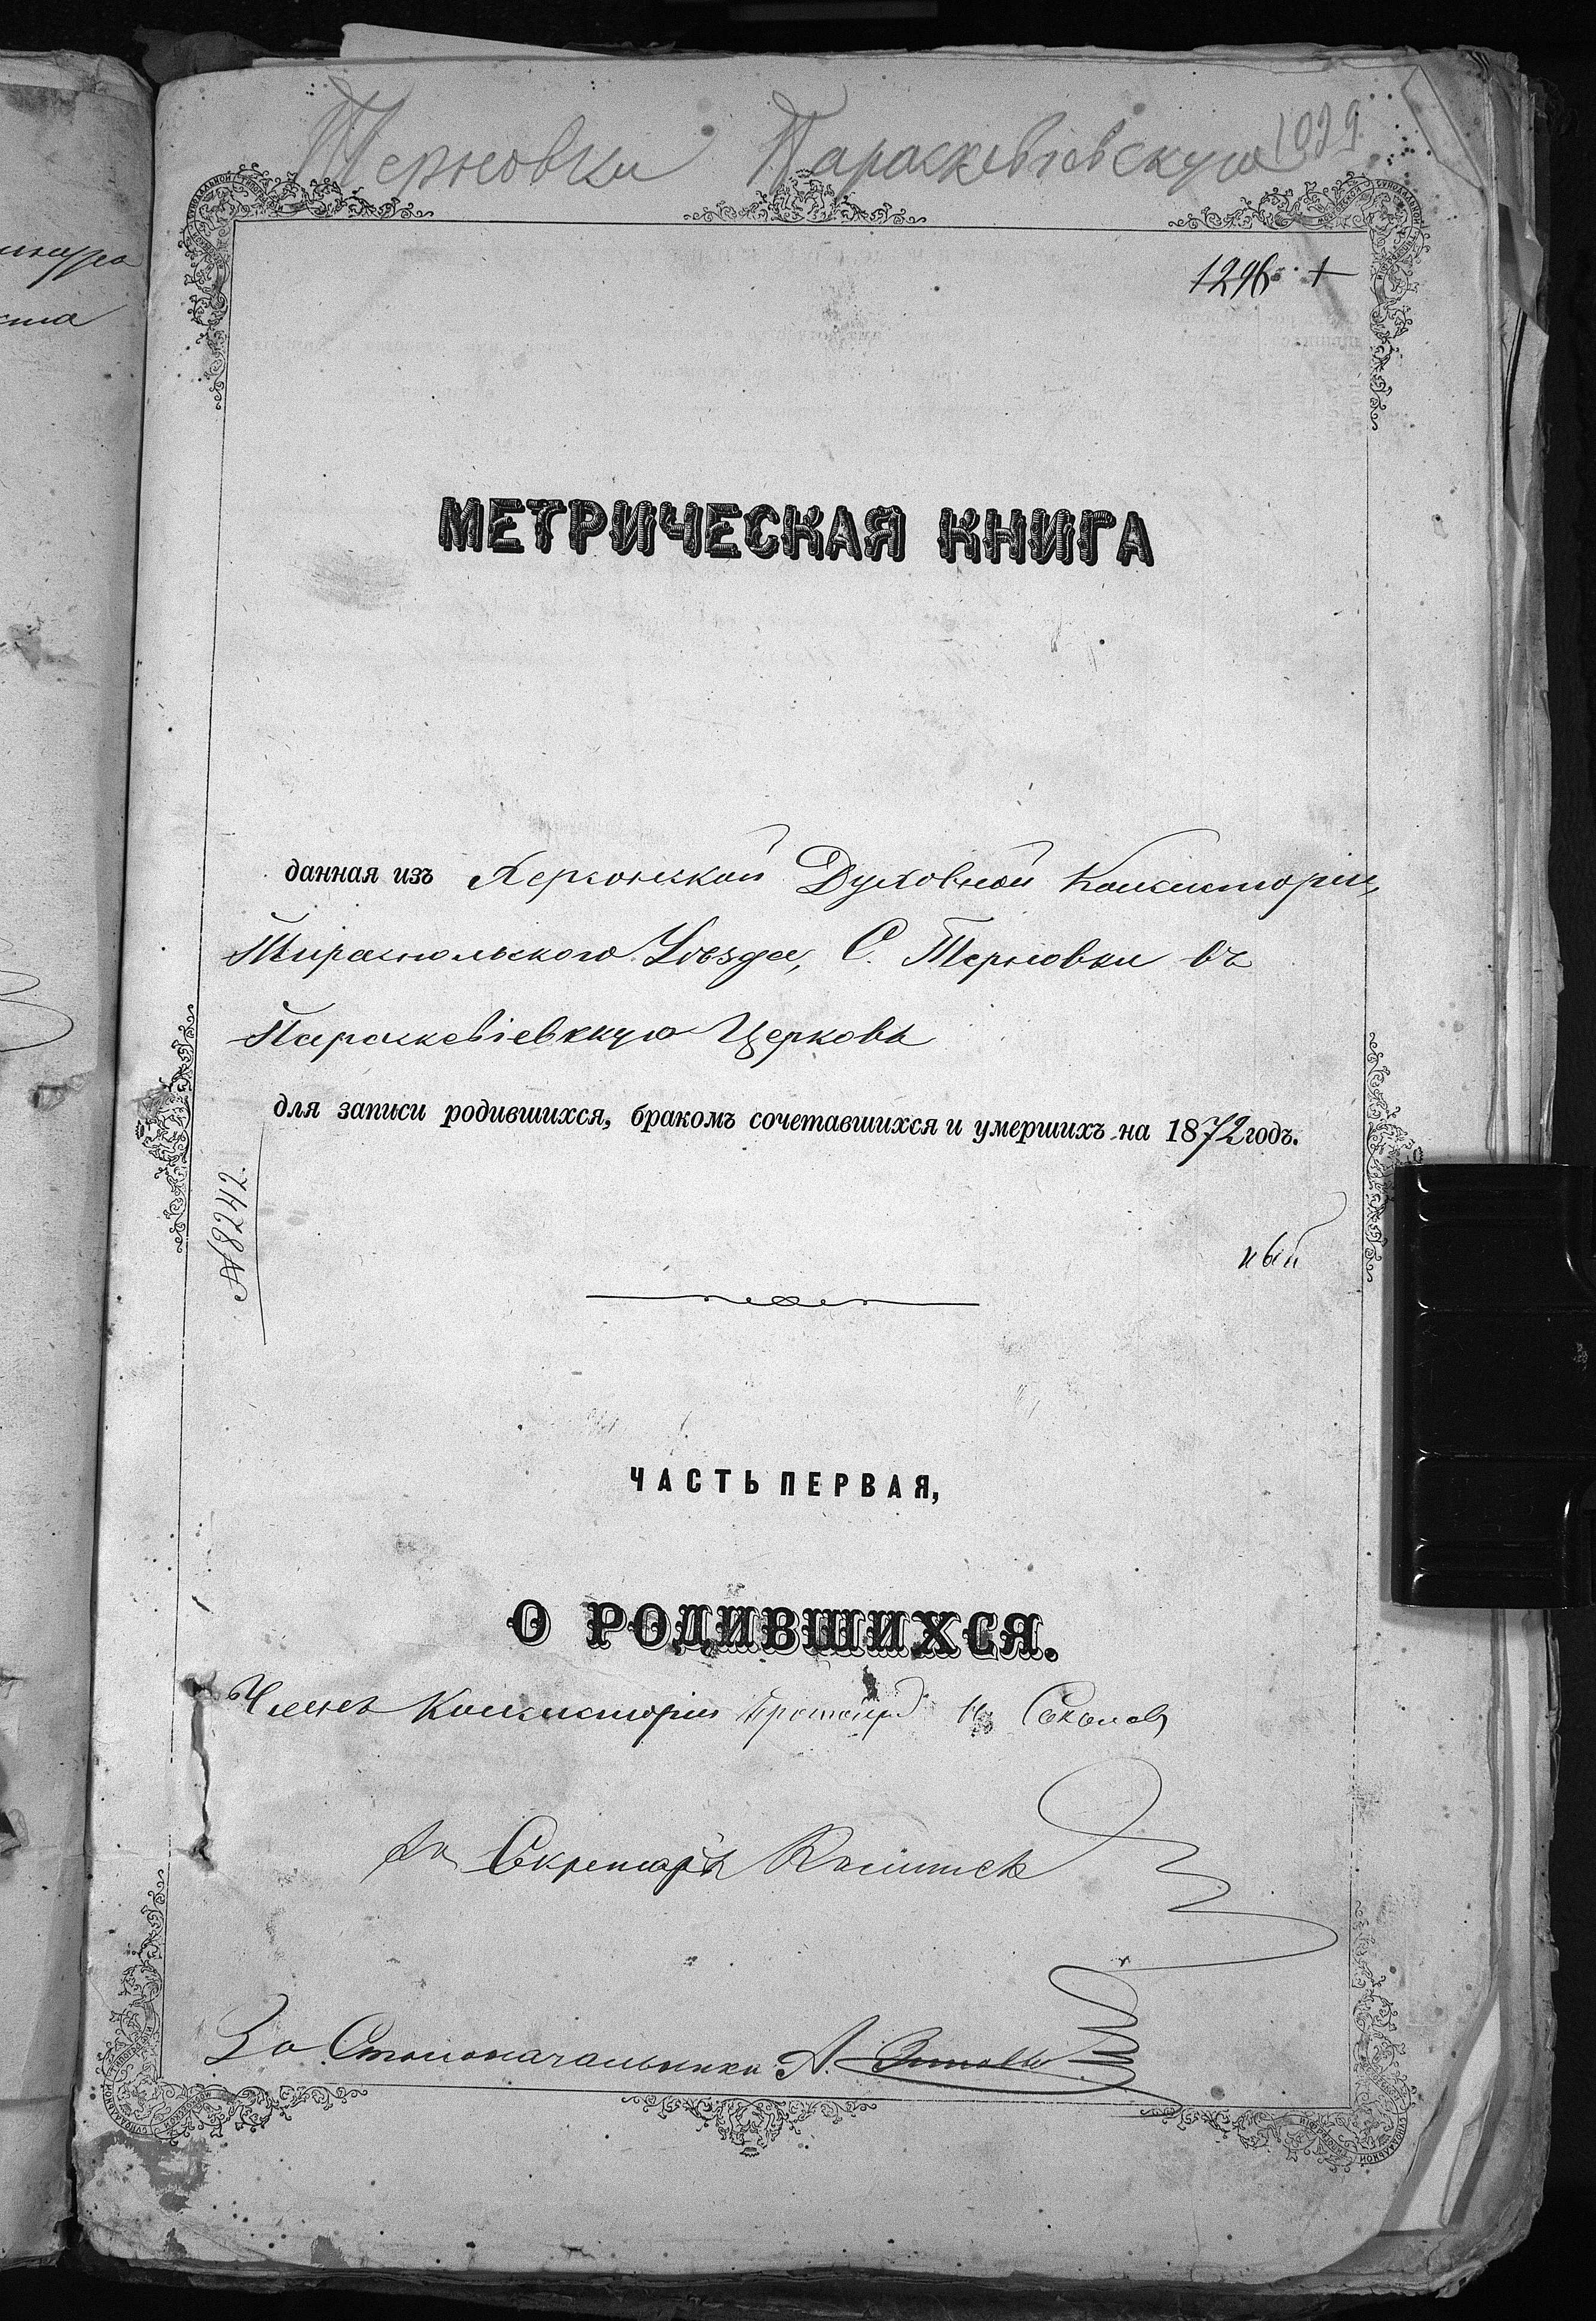 Терновки Параскевіевскую 1029
1296 +
МЕТРИЧЕСКАЯ КНИГА
данная изъ Херсонской Духовной Консисторіи,
Тираспольского Уѣзда, С. Терновки въ
Параскевіевскую Церковь
для записи родившихся, бракомъ сочетавшихся и умершихъ на 1872 годъ.
№ 8242.
ный
ЧАСТЬ ПЕРВАЯ,
О РОДИВШИХСЯ.
Членъ Консисторіи Протоіер Соколов
Секретарь
За Столоначальника А.